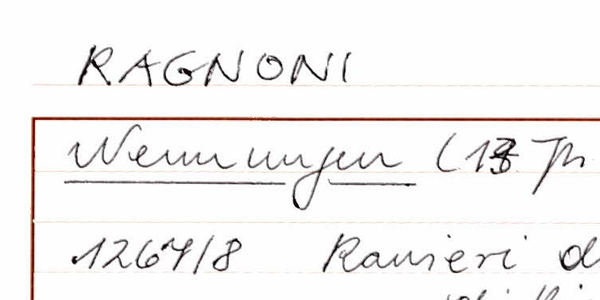 RAGNONI
Nennungen (13 Jh
1267/8 Ranieri d